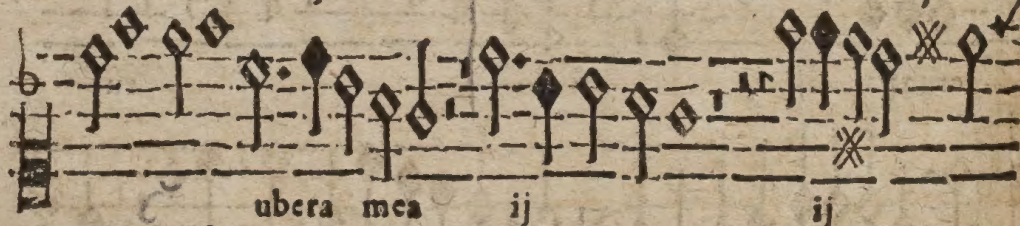 ubera mea ij ij